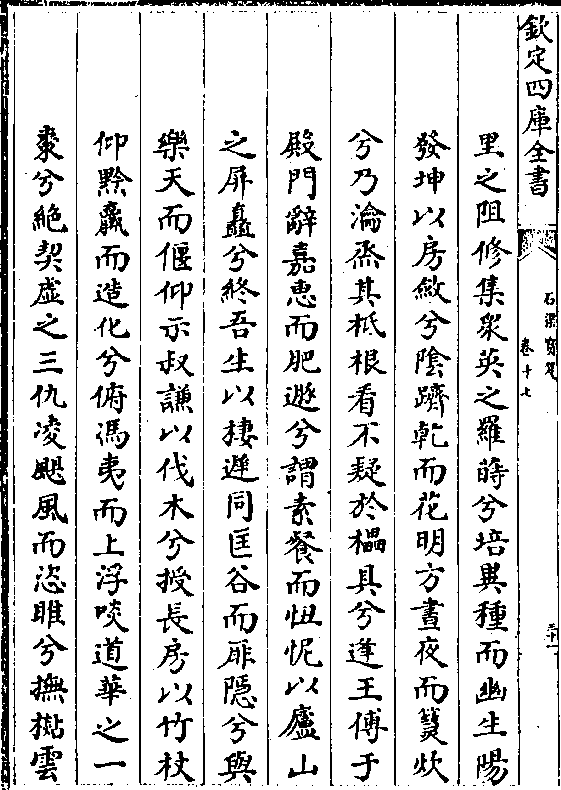 欽定四庫全書
石渠寶笈
卷十七
里之阻修集衆英之羅蒔兮培異種而幽生陽
發坤以房斂兮陰躋乾而花明方晝夜而爨炊
兮乃瀹烝其柢根看不疑於櫑具兮逢王傅于
殿門辭嘉惠而肥遯兮謂素餐而忸怩以廬山
之屏矗兮終吾生以棲遲同匡谷而扉隱兮與
樂天而偃仰示叔謙以伐木兮授長房以竹杖
仰黔羸而造化兮俯馮夷而上浮啖道華之一
棗兮絶契虚之三仇凌颸風而恣睢兮撫㩻雲